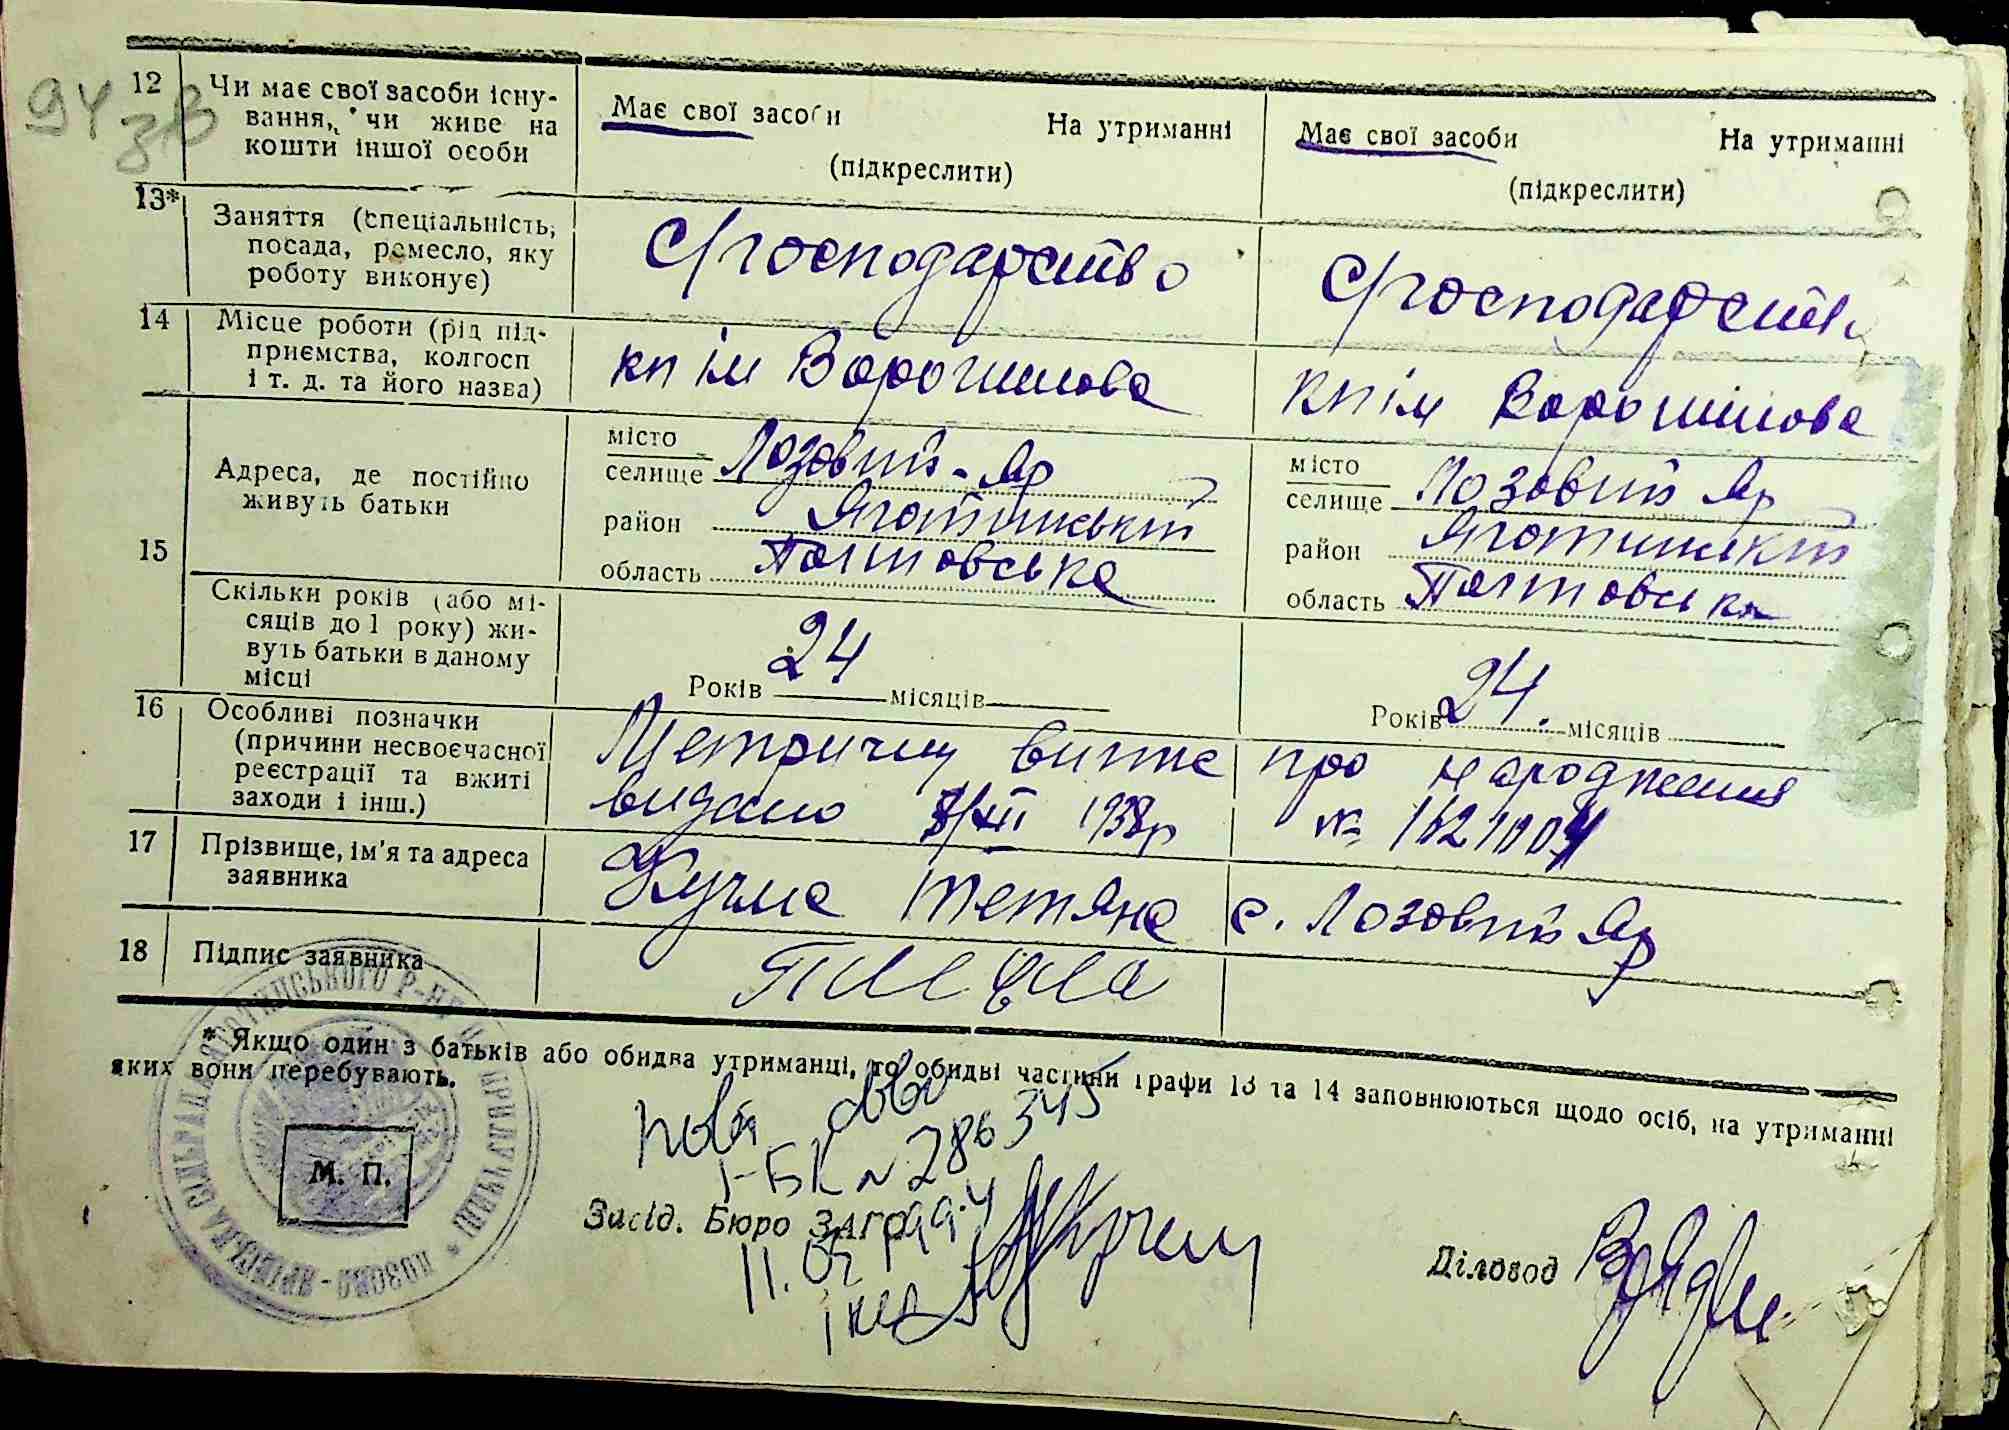 94
зв
12 Чи має свої засоби існу-
вання, чи живе на
кошти іншої особи
Має свої засоби На утриманні
(підкреслити)
Має свої засоби На утриманні
(підкреслити)
13* Заняття (спеціальність,
посада, ремесло, яку
роботу виконує)
С/господарство
С/господарство
14 Місце роботи (рід під-
приємства, колгосп
і т. д. та його назва)
кп ім Ворошилова
кп ім Ворошилова
15
Адреса, де постійно
живуть батьки
місто
селище Лозовий-Яр
район Яготинський
область Полтовська
місто
селище Лозовий Яр
район Яготинський
область Полтовська
Скільки років (або мі-
сяців до 1 року) жи-
вуть батьки в даному
місці
24
Років місяців
24.
Років місяців
16 Особливі позначки
(причини несвоєчасної
реєстрації та вжиті
заходи і інш.)
Метричну випис про народження
видано 8/XII 1938р №
17 Прізвище, ім'я та адреса
заявника
Кучма Тетяна с. Лозовий Яр
18 Підпис заявника
* Якщо один з батьків або обидва утриманці, то обидві частини графи 13 та 14 заповнюються щодо осіб, на утриманні
яких вони перебувають.
І-БК № 286345
М. П.
Завід. Бюро ЗАГС
Діловод